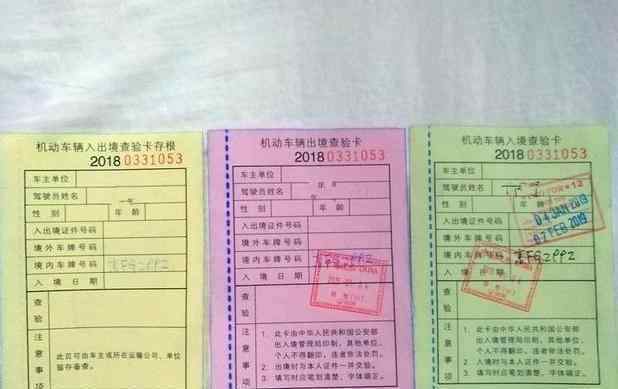 机动车辆入出境查验卡存根
2018 0331053
车主单位
驾驶员姓名
性别 年龄
入出境证件号码
境外车牌号码
境内车牌号码 京FG2PP2
入境日期
查验
注意事项
此页可由车主或所在运输公司、单位
留存备查。
机动车辆出境查验卡
2018 0331053
车主单位
驾驶员姓名
性别 年龄
入出境证件号码
境外车牌号码
境内车牌号码 京FG2PP2
入境日期
查验
注意事项
1. 此卡由中华人民共和国公安部
出入境管理局印制,其他单位、
个人不得翻印,违者依法处罚。
2. 出境时与本人证件一并交验。
3. 填写时应笔划清楚、字体端正。
机动车辆入境查验卡
2018 0331053
车主单位
驾驶员姓名
性别 年龄
入出境证件号码
境外车牌号码
境内车牌号码 京FG2PP2
入境日期
04 JAN 2019
07 FEB 2019
查验
注意事项
1. 此卡由中华人民共和国公安部
出入境管理局印制,其他单位、
个人不得翻印,违者依法处罚。
2. 入境时与本人证件一并交验。
3. 填写时应笔划清楚、字体端正。